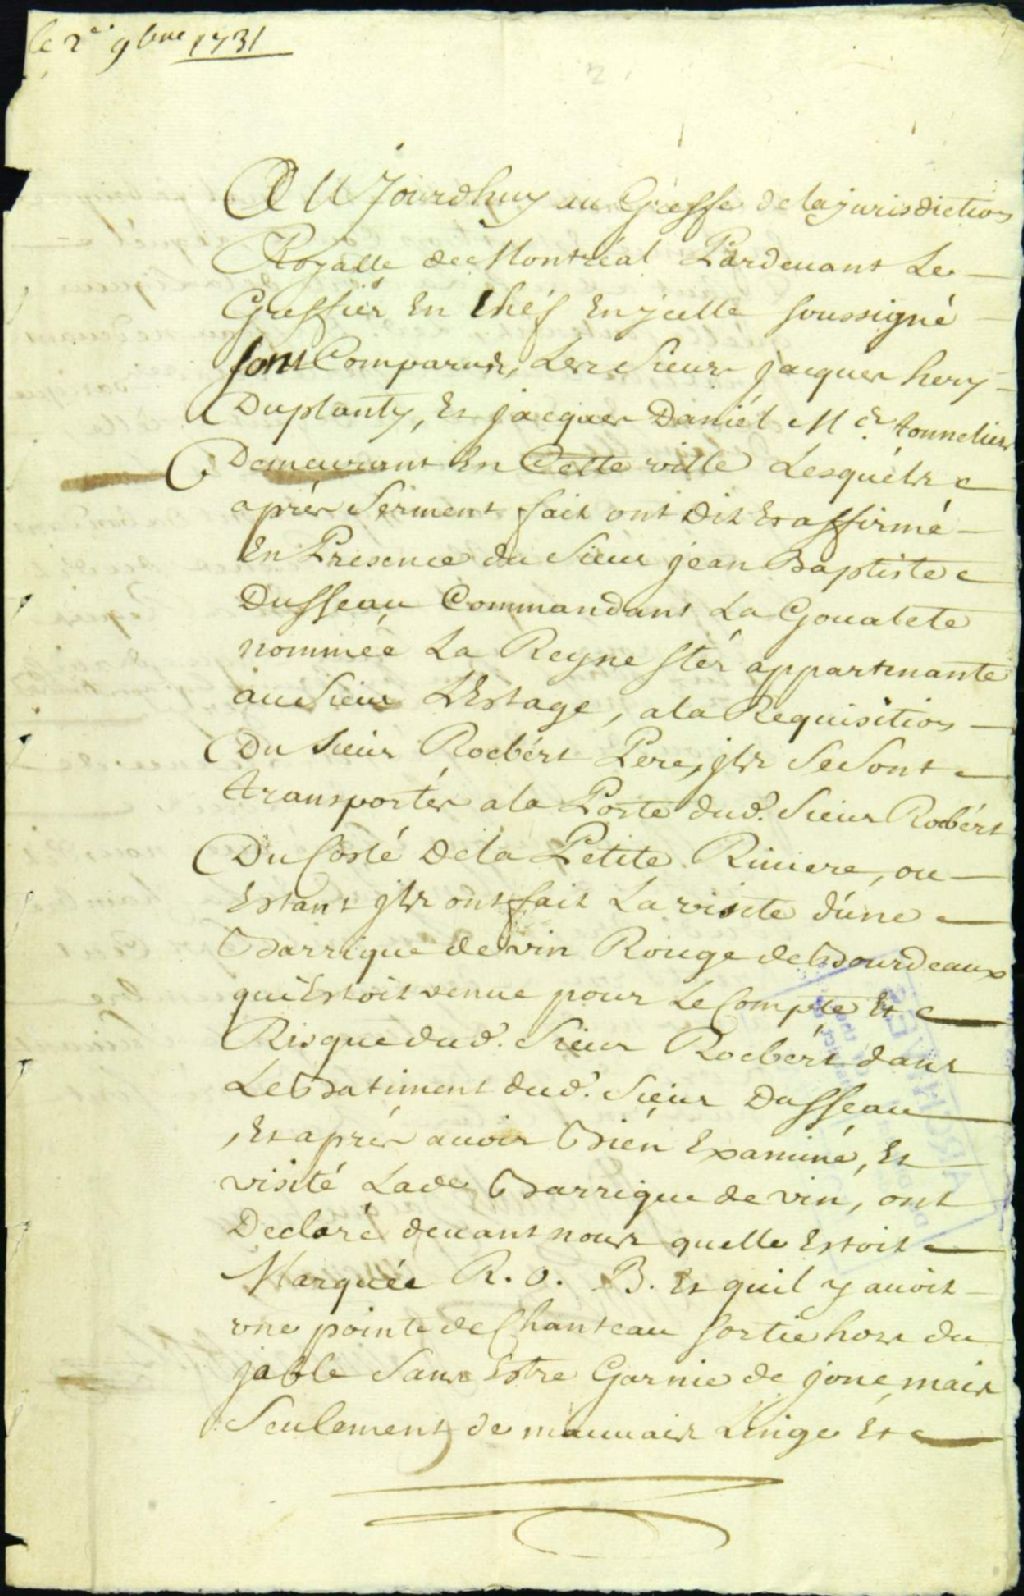 le 2e 9bre 1731
AUJourdhuy au Greffe de la jurisdiction
Royalle de Montréal Pardevant Le
Greffier En Chéf En jcelle soussigné
sont Comparus, Les Sieurs jacques hery
Duplanty, Et jacques Daniél Me. tonnelier
Demeurant En Cette ville Lesquéls
aprés Serment fait ont dit Et affirmé
En Presence du Sieur jean Baptiste
Dusseau Commandant La Goualete
nommée La Reyne stér appartenante
au Sieur L'Estage, a la Requisition
Du Sieur Roebért Pere, jls Se Sont
transportés a la Porte dud. Sieur Robért
Du Costé De la Petite Riviere, ou
Estant jls ont fait La visite d'une
Barrique de vin Rouge de Bourdeaux
qui Estoit venue pour Le Compte Et
Risque dud. Sieur Roebért dans
Le Batiment dud. Sieur Dusseau
, Et aprés avoir Bién Examiné, Et
visité Lade. Barrique de vin, ont
Declaré devant nous quelle Estoit
Marquée R. O. B. Et quil y avoit
une pointe de Chanteau sortie hors du
jable Sans Estre Garnie de jonc mais
Seulement de mauvais Linge Et